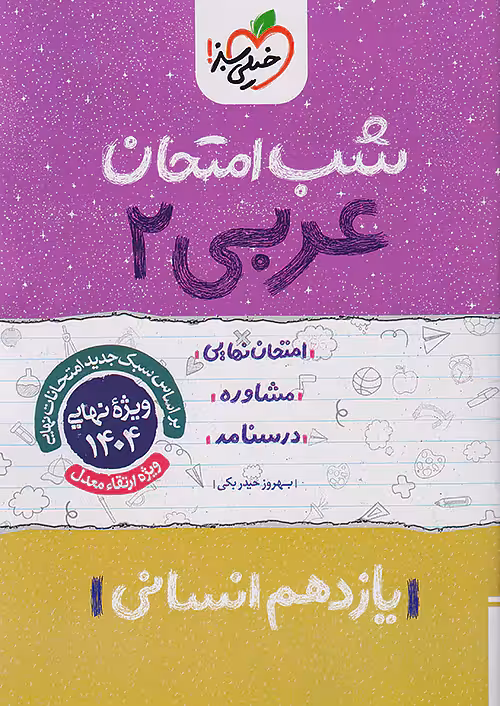 خیلی سبز!
شب امتحان
عربی ۲
امتحان نهایی
مشاوره
درسنامه
بهروز حیدربکی
براساس سبک جدید امتحانات نهایی
ویژهٔ نهایی
۱۴۰۴
ویژه ارتقاء معدل
یازدهم انسانی